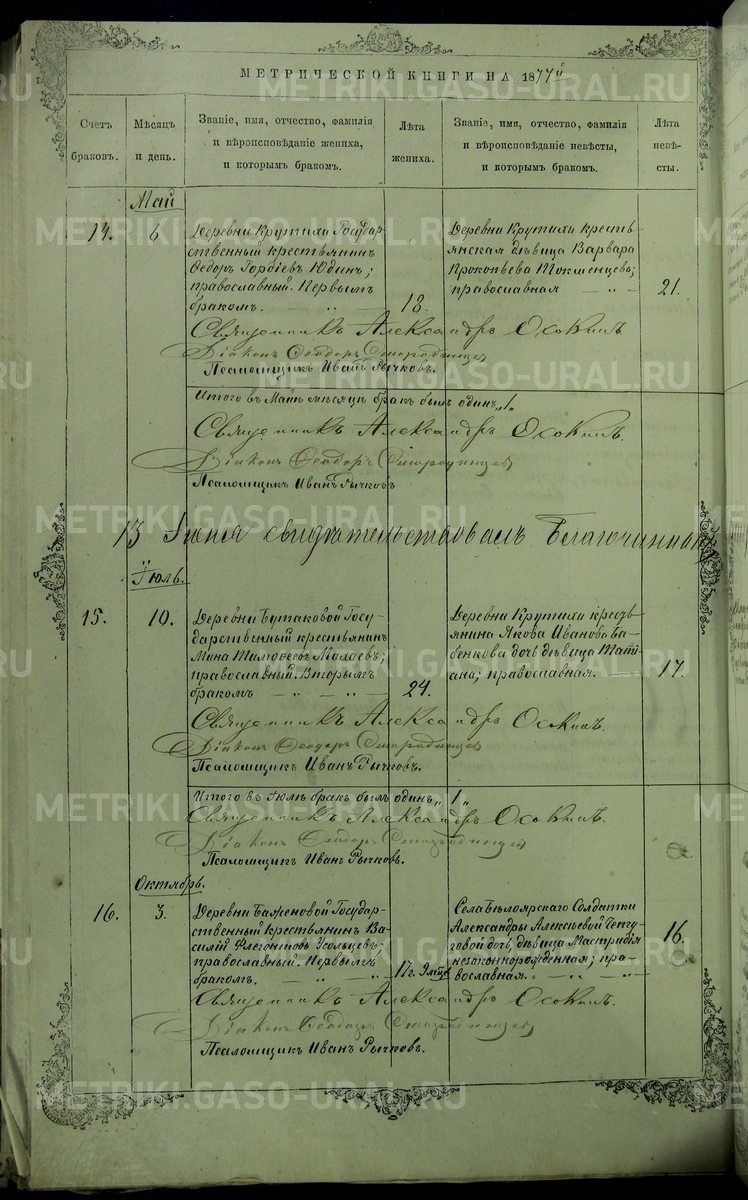 МЕТРИЧЕСКОЙ КНИГИ НА 1877й
Счетъ браковъ.
Мѣсяцъ и день.
Званіе, имя, отчество, фамилія
и вѣроисповѣданіе жениха,
и которымъ бракомъ.
Лѣта жениха.
Званіе, имя, отчество, фамилія
и вѣроисповѣданіе невѣсты,
и которымъ бракомъ.
Лѣта невѣ-
сты.
Май
14.
6
Деревни Крутихи Государ-
ственный крестьянинъ
Ѳедоръ Гордіевъ Юдинъ;
православный. Первымъ
бракомъ.
18.
Деревни Крутихи кресть-
янская дѣвица Варвара
Прокопьева Токменцева;
православная
21.
Священникъ Александръ Осокинъ
Діаконъ Ѳеодоръ
Псаломщикъ Иванъ Рычковъ.
Итого въ Маѣ мѣсяцѣ бракъ былъ одинъ „1„
Священникъ Александръ Осокинъ.
Діаконъ Ѳеодоръ
Псаломщикъ Иванъ Рычковъ
13 Іюня свидѣтельствовалъ Благочинный
Іюль.
15.
10.
Деревни Бутаковой Госу-
дарственный крестьянинъ
Мина Тимоѳеевъ
православный. Вторымъ
бракомъ
24.
Деревни Крутихи кресть-
янина Якова Иванова Ба-
бенкова дочь дѣвица Тать-
ана; православная.
17.
Священникъ Александръ Осокинъ.
Діаконъ Ѳеодоръ
Псаломщикъ Иванъ Рычковъ.
Итого въ Іюлѣ бракъ былъ одинъ „1„
Священникъ Александръ Осокинъ.
Діаконъ Ѳеодоръ
Псаломщикъ Иванъ Рычковъ.
Октябрь.
16.
3.
Деревни Баженовой Государ-
ственный крестьянинъ Ва-
силій Флегонтовъ Усольцевъ;
православный. Первымъ
бракомъ.
17 г.
Села Бѣлоярскаго Солдатки
Александры Алексѣевой
дочь, дѣвица Мастридія
незаконнорожденная; пра-
вославная.
16.
Священникъ Александръ Осокинъ.
Діаконъ Ѳеодоръ
Псаломщикъ Иванъ Рычковъ.
METRIKI.GASO-URAL.RU